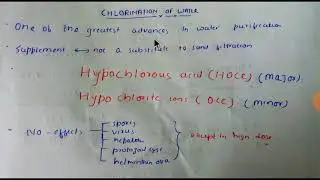 CHLORINATION OF WATER
- One of the greatest advances in water purification
- Supplement ↔ not a substitute to sand filtration
Hypochlorous acid (HOCl) (major)
Hypochlorite ions (OCl) (minor)
- NO effect
spores
virus
hepatitis
protozoal cyst
helminthic ova
except in high dose